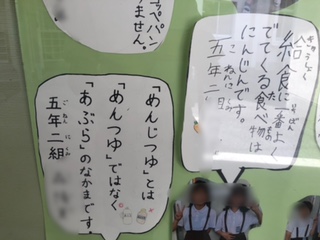 っペパン
ません。
給食に一番よく
でてくる食べ物は
にんじんです。
五年二
「めんじつゆ」とは
「めんつゆ」ではなく
「あぶら」のなかまです。
五年二組